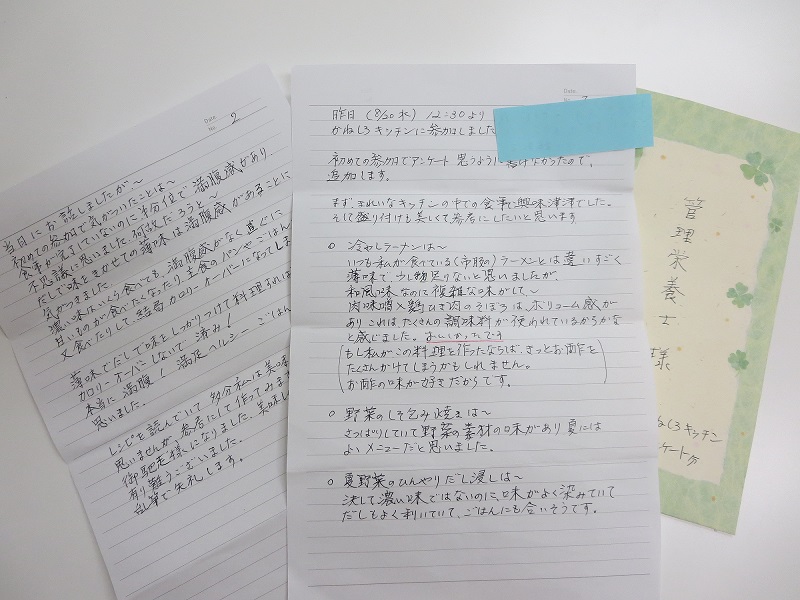 Date
No.
昨日 (8/30 水) 12:30より
かねしろキッチンに参加しました
初めての参加でアンケート 思うように書けなかったので、
追加します。
まず、きれいなキッチンの中での食事に興味津津でした。
そして盛り付けも美しくて参考にしたいと思います
○ 冷やしラーメンは〜
いつも私が食べている(市販の)ラーメンとは違いすごく
薄味で、少し物足りないと思いましたが、
和風味なのに複雑な味がして〜
肉味噌×麹ひき肉のそぼろは、ボリューム感が
あり これは、たくさんの調味料が使われているからかな
と感じました。おいしかったです
(もし私がこの料理を作ったならば、きっとお酢を
たくさんかけてしまうかもしれません。
お酢の味が好きだからです。)
○ 野菜のしそ包み焼きは〜
さっぱりしていて野菜の素材の味があり夏には
よいメニューだと思いました。
○ 夏野菜のひんやりだし浸しは〜
決して濃い味ではないのに、味がよく染みていて
だしもよく利いていて、ごはんにも合いそうです。
Date
No. 2
当日にお話しましたが、〜
初めての参加で気がついたことは〜
食事が完了していないのに半分位で満腹感があり
不思議に思いました。何故だろうと〜
だしで味ときかせての薄味は満腹感があることに
気がつきました
濃い味はいくら食べても、満腹感がなく直ぐに
甘いものが食べたくなったり主食のパンやごはん
又食べたりして、結局カロリーオーバーになってしま
薄味でだしで味をしっかりつけて料理すれば
カロリーオーバーしないで済み!
本当に満腹! 満足 ヘルシー ごはん
思いました。
レシピを読んでいて、多分私は美味
思いませんが、参考にして作ってみま
御馳走様になりました、美味し
有り難うございました。
乱筆で失礼します。
管理栄養士 様
ねしろキッチン
ケートケ